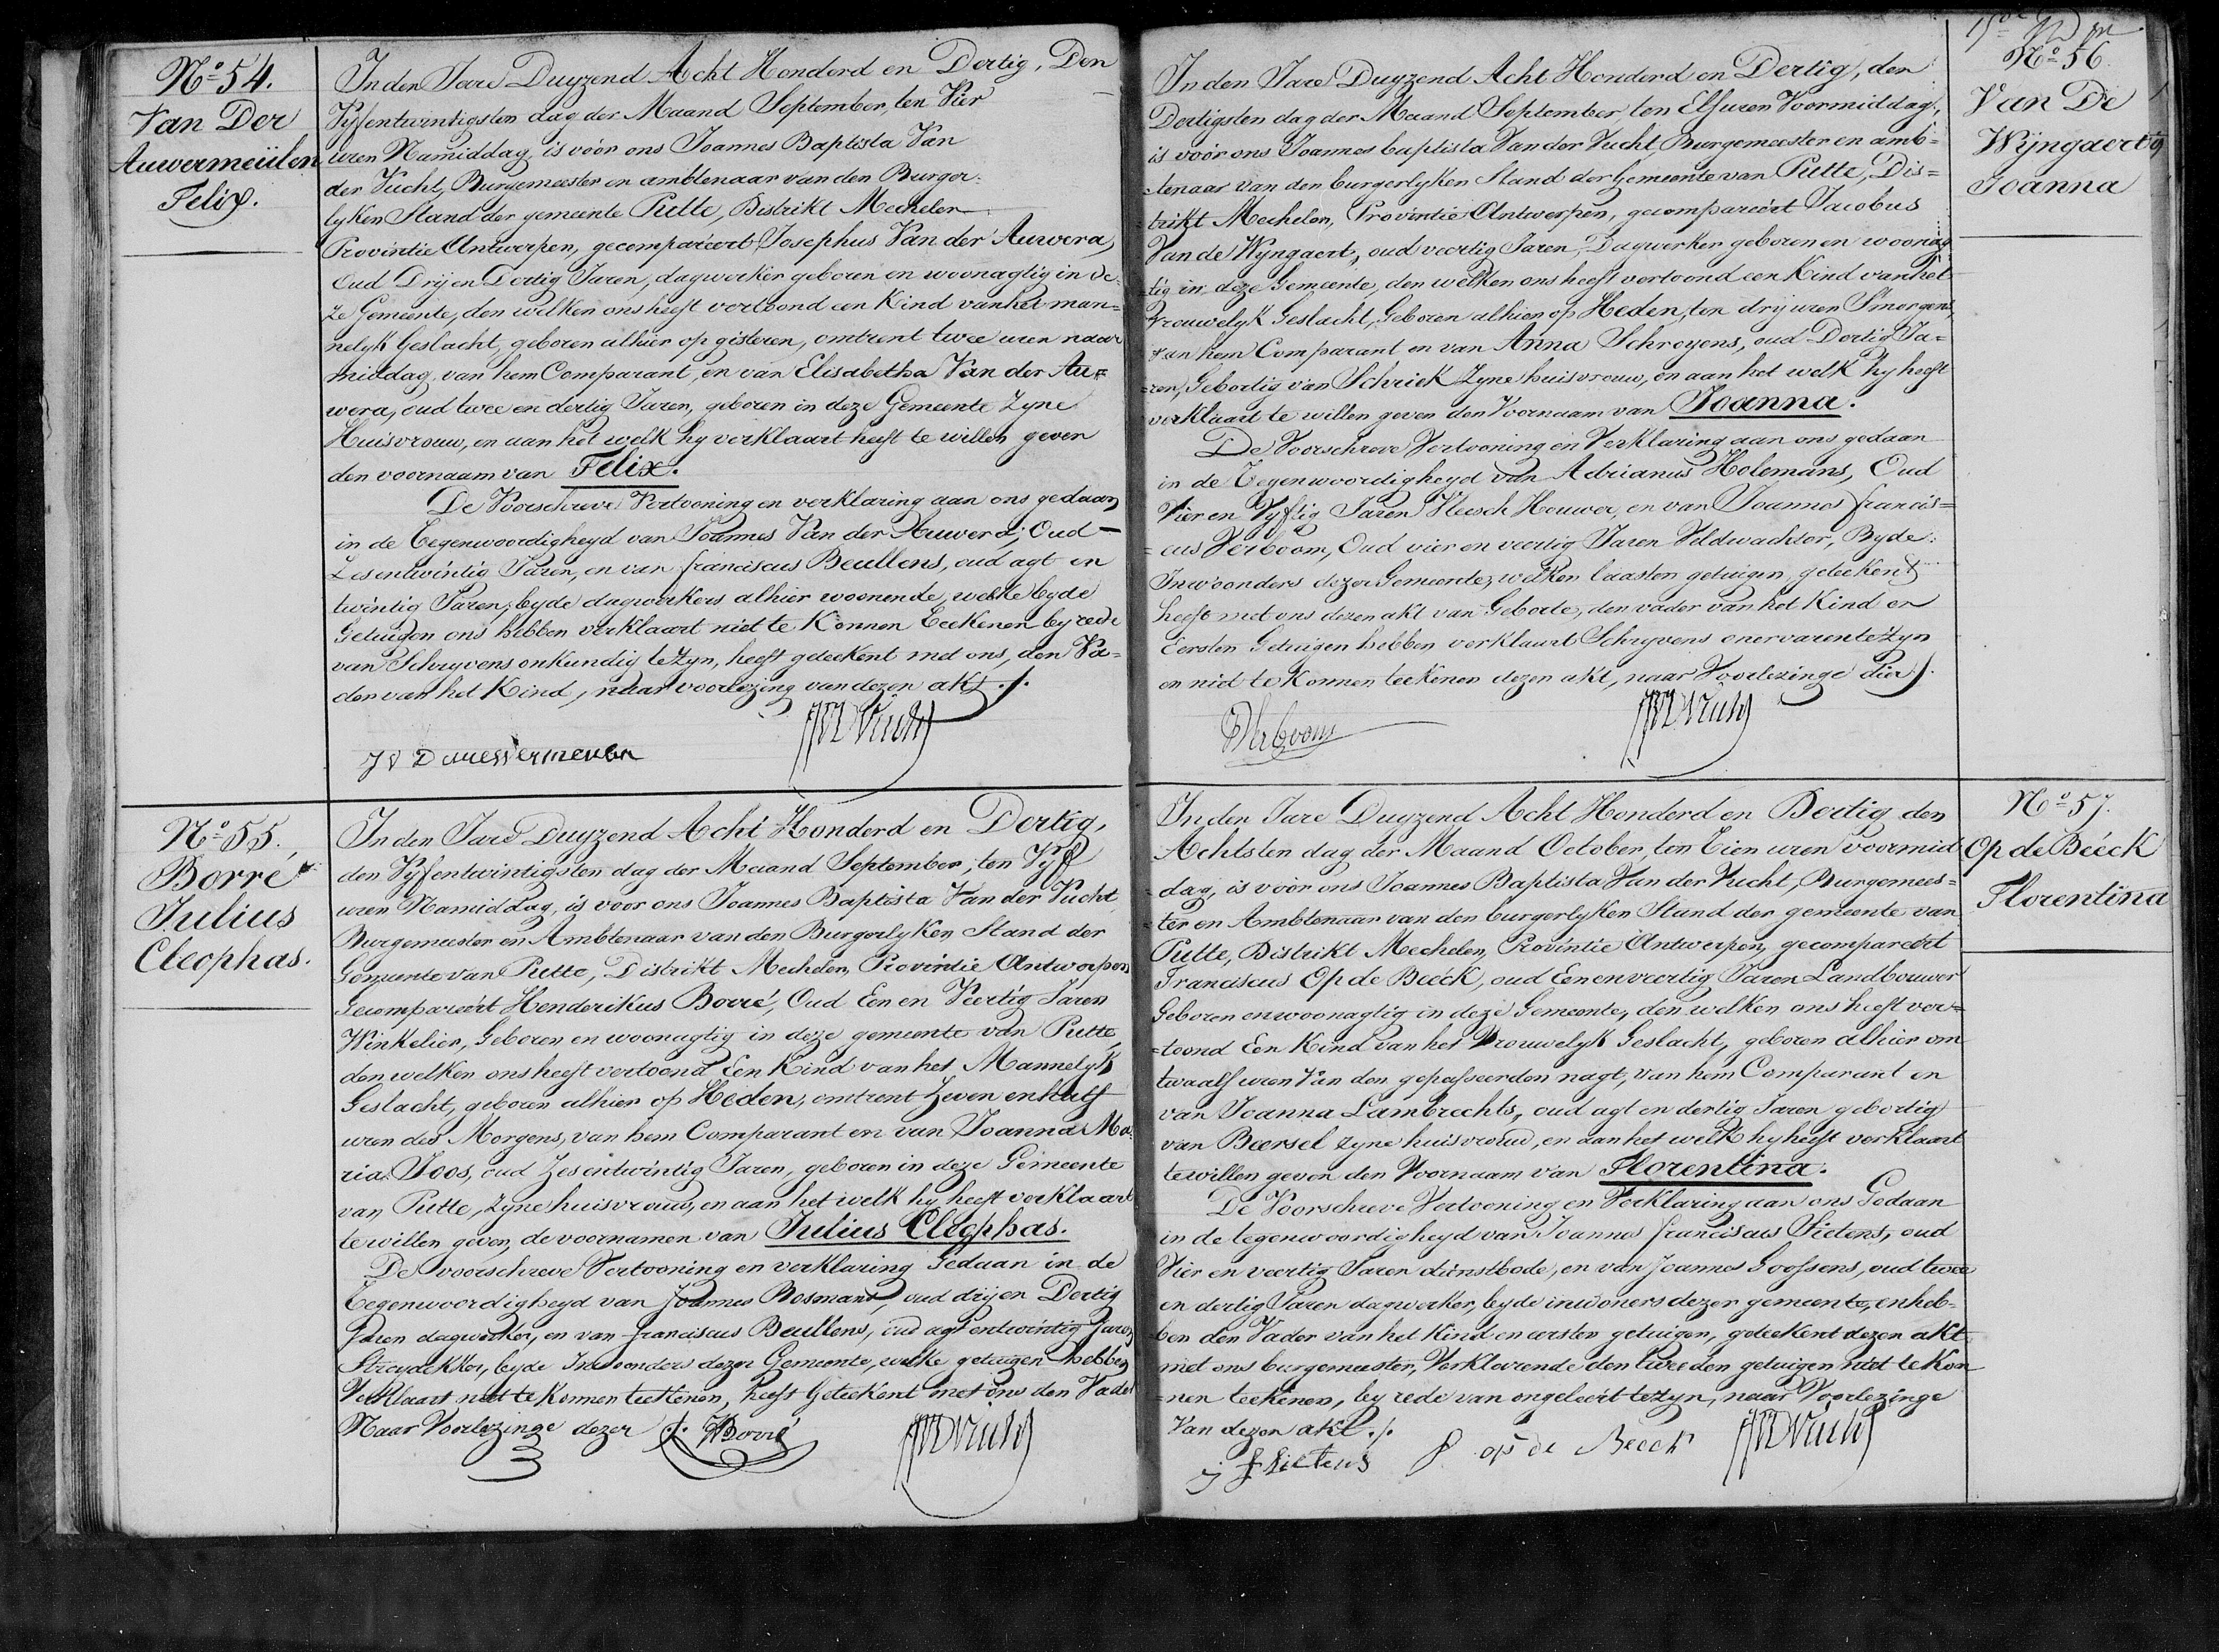 No 54.
Van Der
Auwermeülen
Felix.
In den Jare Duyzend Acht Honderd en Dertig, Den
Vyfentwintigsten dag der Maand September, ten Vier
uren Namiddag, is vóór ons Joannes Baptista Van
der Vucht, Burgemeester en ambtenaar van den Burger-
lyken Stand der gemeente Putte, Distrikt Mechelen
Provintie Antwerpen, gecompareert Josephus Van der Auwera,
Oud Drij en Dertig Jaren, dagwerker geboren en woonagtig in de-
ze Gemeente, den welken ons heeft vertoond een Kind van het man=
nelyk Geslacht, geboren alhier op gisteren, omtrent twee uren naar
middag, van hem Comparant, en van Elisabetha Van der Au=
wera, oud twee en dertig Jaren, geboren in deze Gemeente zyne
Huisvrouw, en aan het welk hy verklaart heeft te willen geven
den voornaam van Felix.
De Voorschreve Vertooning en verklaring aan ons gedaan
in de Tegenwoordigheyd van Joannes Van der Auwera, Oud
Zesentwintig Jaren, en van franciscus Beullens, oud agt en
twintig Jaren, beyde dagwerkers alhier woonende, welke beyde
Getuigen ons hebben verklaart niet te Konnen teekenen by rede
van Schryvens onkundig te zyn, heeft geteekent met ons, den Va=
der van het Kind, naar voorlezing van dezen akt ./.
No 55.
Borré
Julius
Cleophas.
In den Jare Duyzend Acht Honderd en Dertig,
den Vyfentwintigsten dag der Maand September, ten Vyf
uren Namiddag, is voor ons Joannes Baptista Van der Vucht,
Burgemeester en Ambtenaar van den Burgerlyken Stand der
Gemeente van Putte, Distrikt Mechelen, Provintie Antwerpen
Gecompareért Henderikus Borré, Oud Een en Veertig Jaren
Winkelier, Geboren en woonagtig in deze gemeente van Putte,
den welken ons heeft vertoond Een Kind van het Mannelyk
Geslacht, geboren alhier op Heden, omtrent Zeven en half
uren des Morgens, van hem Comparant en van Joanna Ma-
ria Joos, oud Zesentwintig Jaren, geboren in deze Gemeente
van Putte, zyne huisvrouw, en aan het welk hy heeft verklaart
te willen geven, de voornamen van Julius Cleophas.
De voorschreve Vertooning en verklaring Gedaan in de
Tegenwoordigheyd van Joannes Bosmans, oud drijen Dertig
Jaren dagwerker, en van franciscus Beullens, oud agt entwintig Jaren
Stroydekker, beyde Inwoonders dezer Gemeente, welke getuigen hebben
Verklaart niet te Konnen teekenen, heeft Geteekent met ons den Vader
Naar Voorlezinge dezer ./. H Borré
No 56.
Van De
Wijngaert
Joanna
In den Jare Duyzend Acht Honderd en Dertig, den
Dertigsten dag der Maand September, ten Elf uren Voormiddag,
is voór ons Joannes baptista Van der Vucht, Burgemeester en amb=
tenaar van den burgerlyken Stand der Gemeente van Putte, Dis=
trikt Mechelen, Provintie Antwerpen, gecompareért Jacobus
Van de Wyngaert, oud veertig Jaren, Dagwerker geboren en woonag
tig in deze Gemeente, den welken ons heeft vertoond een Kind van het
Vrouwelyk Geslacht, Geboren alhier op Heden, ten drij uren S'morgens,
van hem Comparant en van Anna Schroyens, oud Dertig Ja=
ren, Gebortig van Schriek Zyne huisvrouw, en aan het welk hy heeft
verklaart te willen geven den Voornaam van Joanna.
De Voorschreve Vertooning en Verklaring aan ons gedaan
in de Tegenwoordigheyd van Adrianus Holemans, Oud
Vier en Vyftig Jaren Vleesch Houwer, en van Joannes francis=
cus Verboom, Oud vier en veertig Jaren Veldwachter, Byde
Inwoonders dezer Gemeente, welken laasten getuigen geteekent
heeft met ons dezen akt van Geborte, den vader van het Kind en
Eersten Getuigen hebben verklaart Schryvens onervaren te zyn
en niet te Konnen teekenen dezen akt, naar Voorlezinge dier ./.
Verboom
No 57.
Op de Beéck
Florentina
In den Jare Duyzend Acht Honderd en Dertig den
Achtsten dag der Maand October, ten Tien uren voormid
dag, is vóór ons Joannes Baptista Van der Vucht, Burgemees=
ter en Ambtenaar van den burgerlyken Stand der gemeente van
Putte, Distrikt Mechelen, Provintie Antwerpen, gecompareért
Franciscus Op de Beéck, oud Een en veertig Jaren Landbouwer
Geboren en woonagtig in deze Gemeente, den welken ons heeft ver=
toond Een Kind van het Vrouwelyk Geslacht, geboren alhier om
twaalf uren Van den gepasseerden nagt, van hem Comparant en
van Joanna Lambrechts, oud agt en dertig Jaren gebortig
van Beersel zyne huisvrouw, en aan het welk hy heeft verklaart
te willen geven den Voornaam van Florentina.
De Voorschreve Vertooning en Verklaring aan ons Gedaan
in de tegenwoordigheyd van Joannes franciscus Sietens, oud
Vier en veertig Jaren dienstbode, en van Joannes Goossens, oud twee
en dertig Jaren dagwerker, beyde inwoners dezer gemeente, en heb-
ben den Vader van het Kind en eersten getuigen, geteekent dezen akt
met ons burgemeester, Verklarende den tweeden getuigen niet te Kon
=nen teekenen, by rede van ongeleért te zyn, naar Voorlezinge
Van dezen akt ./.
j f Sietens f op de Beeck